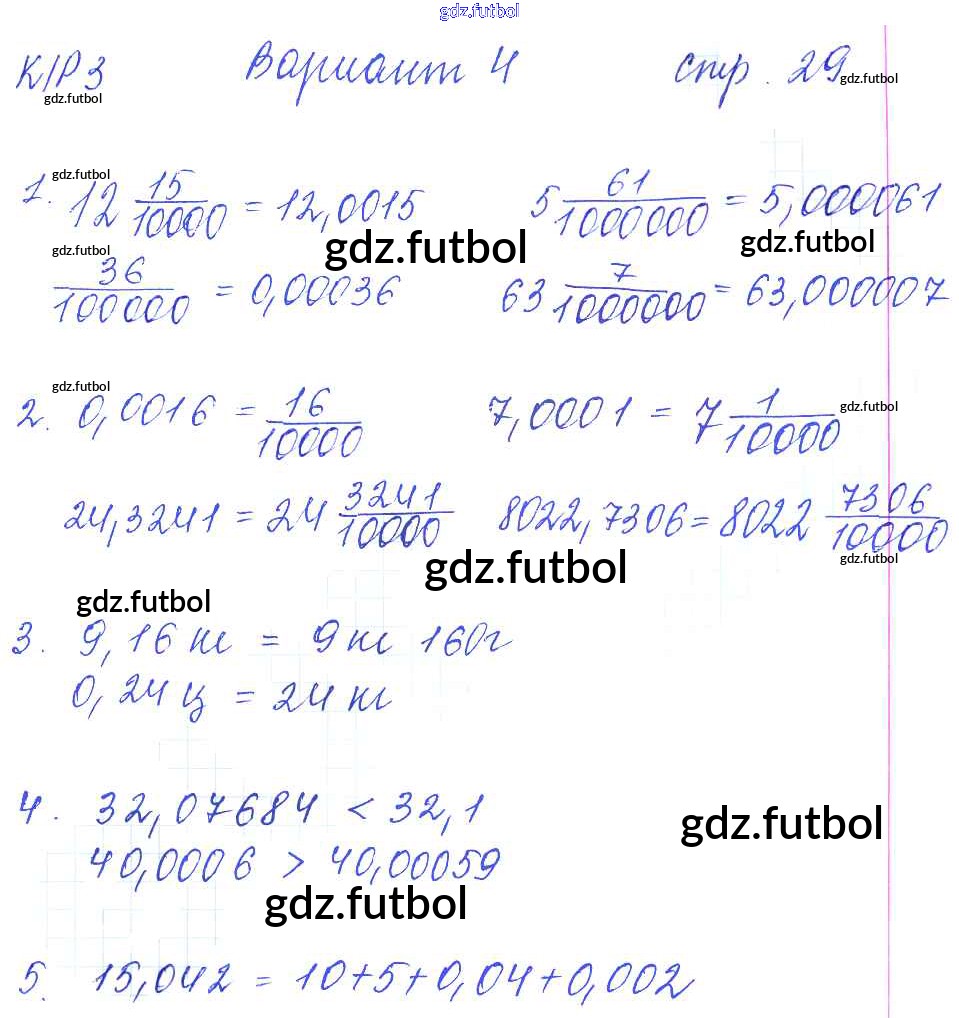 gdz.futbol
К/Р 3 Вариант 4 стр. 29
gdz.futbol gdz.futbol
gdz.futbol
1. 12 15/10000 = 12,0015 5 61/1000000 = 5,000061
gdz.futbol gdz.futbol gdz.futbol
36/100000 = 0,00036 63 7/1000000 = 63,000007
gdz.futbol
2. 0,0016 = 16/10000 7,0001 = 7 1/10000
gdz.futbol
24,3241 = 24 3241/10000 8022,7306 = 8022 7306/10000
gdz.futbol gdz.futbol
gdz.futbol
3. 9,16 кг = 9 кг 160 г
0,24 ц = 24 кг
4. 32,07684 < 32,1
gdz.futbol
40,0006 > 40,00059
gdz.futbol
5. 15,042 = 10+5+0,04+0,002
gdz.futbol